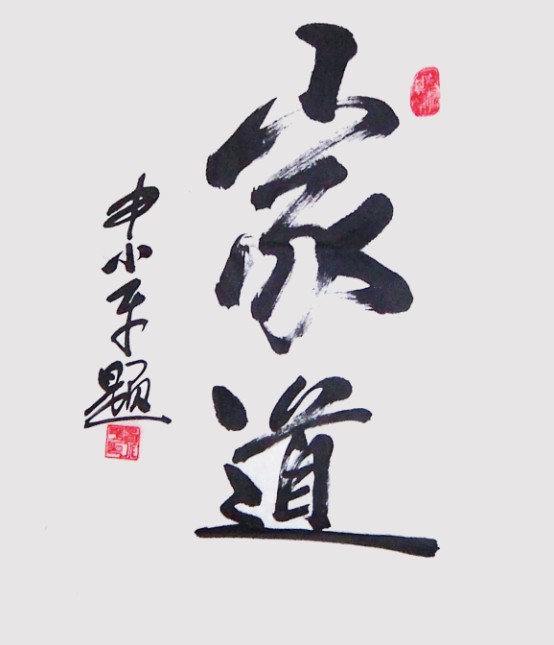 家道
申小平题